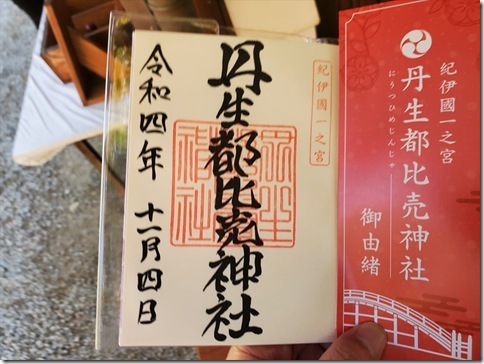 紀伊國一之宮
丹生都比売神社
にうつひめじんじゃ
御由緒
紀伊國一之宮
丹生都比売神社
令和四年 十一月四日